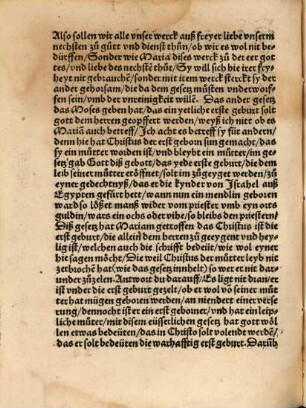 Also sollen wir alle vnser werck auß freyer liebe vnserm
nechsten zů gůtt vnd dienst thůn/ ob wir es wol nit be
dürffen/ Sonder wie Maria dises werck zů der eer got
tes/ vnd liebe des nechstẽ thůt/ Sy will sich hie irer fry
heyt nit gebrauchẽ/ sonder mit irem werck sterckt sy der
ander gehorsam/ die da dem gesetz můsten vnderworf-
fen sein/ vmb der vnreinigkeit willẽ. Das ander gesetz
das Moses geben hat/ das ein yetliche erste geburt solt
gott dem herren geopffert werden/ weyß ich nitt ob es
Mariã auch betreff/ Ich acht es betreff sy für andern/
denn hie hat Christus der erst geborn sun gemacht/ das
sy ein můtter worden ist/ vnd bleybt ein můtter/ im ge
setz gab Gott diß gebott/ das yede erste geburt/ die dem
leib seiner můtter eröffnet/ solt im zůgeyget werden/ zů
eyner gedechtnyß/ das er die kynder von Israhel auß
Egypten gefürt hett/ wann nun ein mendlin geboren
ward so lößet manß wider vom priester vmb eyn orts
guldin/ wars ein ochs oder vihe/ so bleibs den priesterẽ/
Diß gesetz hat Mariam getroffen das Christus ist die
erst geburt/ die allein dem herren zů geeygent vnd hey-
lig ist/ welchen auch die schrifft bedeüt/ wie wol eyner
hie sagen möcht/ Die weil Christus der můtter leyb nit
zerbrochẽ hat (wie das gesetz innhelt) so wer et nit dar-
under zůzelen. Antwort du darauff/ Es ligt nit dran/ er
ist vnder die erst geburt gezelt/ ob er wol võ seiner můt
ter hat mügen geboren werden/ an niendert einer verse
rung/ dennocht ist er ein erst geborner/ vnd hat ein leip-
liche můter/ mit disem eüsserlichen gesetz hat gott wöl
len etwas bedeüten/ das in Christo solt volendt werdẽ/
das er solt bedeüten die warhafftig erst geburt. Darũb